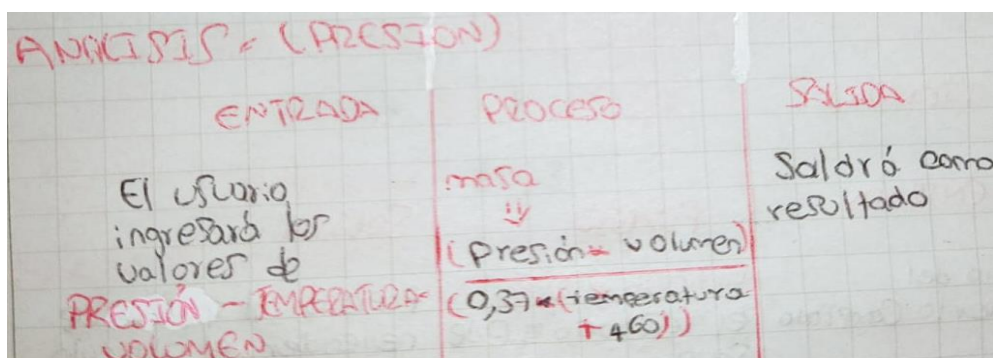 ANÁLISIS = (PRESION)
ENTRADA
PROCESO
SALIDA
El usuario
ingresará los
valores de
PRESIÓN - TEMPERATURA
VOLUMEN
masa
(presión * volumen)
(0,37 * (temperatura
+ 460))
Saldrá como
resultado